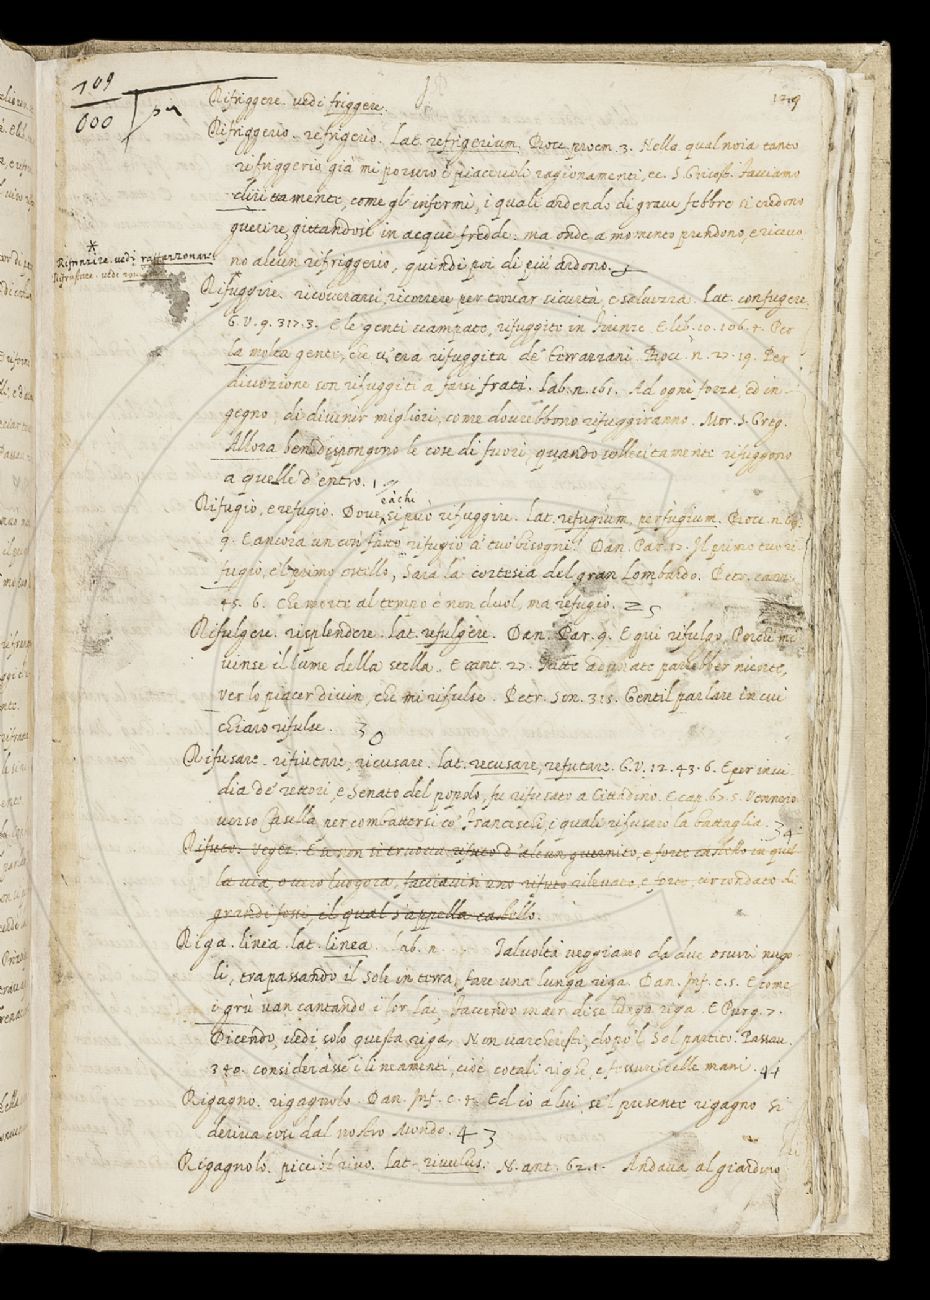 109
000
1219
Rifriggere. vedi friggere.
Rifriggerio. refrigerio. Lat. refrigerium. Bocc. proem. 3. Nella qual noia tanto
rifriggerio già mi porsero i piacevoli ragionamenti, ec. S. Grisost. Facciamo
dirittamente, come gl'infermi, i quali ardendo di grave febbre si credono
guerire, gittandosi in acque fredde: ma onde a momento prendono, e ricevo
no alcun rifriggerio, quindi poi di più ardono.
Rifuggire. ricoverarsi, ricorrere per trovar sicurtà, e salvezza. Lat. confugere.
G. V. 9. 317. 3. E le genti scampate, rifuggito in Firenze. E lib. 10. 106. 4. Per
la molta gente, che v'era rifuggita de' terrazzani. Bocc. n. 27. 19. Per
divozione son rifuggiti a farsi frati. Lab. n. 161. Ad ogni forza, ed in-
gegno, di divenir migliori, come dovrebbono rifuggiranno. Mor. S. Greg.
Allora ben dispongono le cose di fuori, quando sollecitamente rifuggono
a quelle d'entro. 17
eachi
Rifugio, e refugio. Dove si può rifuggire. Lat. refugium, perfugium. Bocc. n.
9. E ancora un con fatto rifugio a' tuo' bisogni. Dan. Par. 17. Il primo tuo ri-
fugio, e'l primo ostello, Sarà la cortesia del gran Lombardo. Petr. canz.
45. 6. Che morte al tempo è non duol, ma refugio. 25
Rifulgere. risplendere. Lat. refulgere. Dan. Par. 9. E qui rifulgo, Perchè mi
vinse il lume della stella. E cant. 27. Fatte adunate parrebber niente,
ver lo piacer divin, che mi rifulse. Petr. Son. 315. Gentil parlare in cui
chiaro rifulse. 30
Rifusare. rifiutare, ricusare. Lat. recusare, refutare. G. V. 12. 43. 6. E per invi-
dia de' rettori, e Senato del popolo, fu rifusato a Cittadino. E cap. 67. 5. Vennero
verso Casella per combattersi co' Franceschi, i quali rifusaro la battaglia. 34
Rifuto. Veget. E se non si truova rifuto d'alcun guernito, e forte castello in quel-
la via, overo luogora, facciavisi uno rifuto rilevato, e forte, circondato di
grandi fossi, il qual s'appella castello.
Riga. linea. lat. linea. Lab. n. Talvolta veggiamo da due oscuri nugo-
li, trapassando il Sole in terra, fare una lunga riga. Dan. Inf. c. 5. E come
i gru van cantando i lor lai, Facendo in aer di se lunga riga. E Purg. 7.
Dicendo, vedi, solo questa riga, Non varcheresti, dopo'l Sol partito. Passav.
340. considerasse i lineamenti, cioè cotali righe, e fessure delle mani. 41
Rigagno. rigagnolo. Dan. Inf. c. 14. Ed io a lui, se'l presente rigagno Si
deriva così dal nostro Mondo. 43
Rigagnolo. picciol rivo. Lat. rivulus. N. ant. 62. 1. Andava al giardino